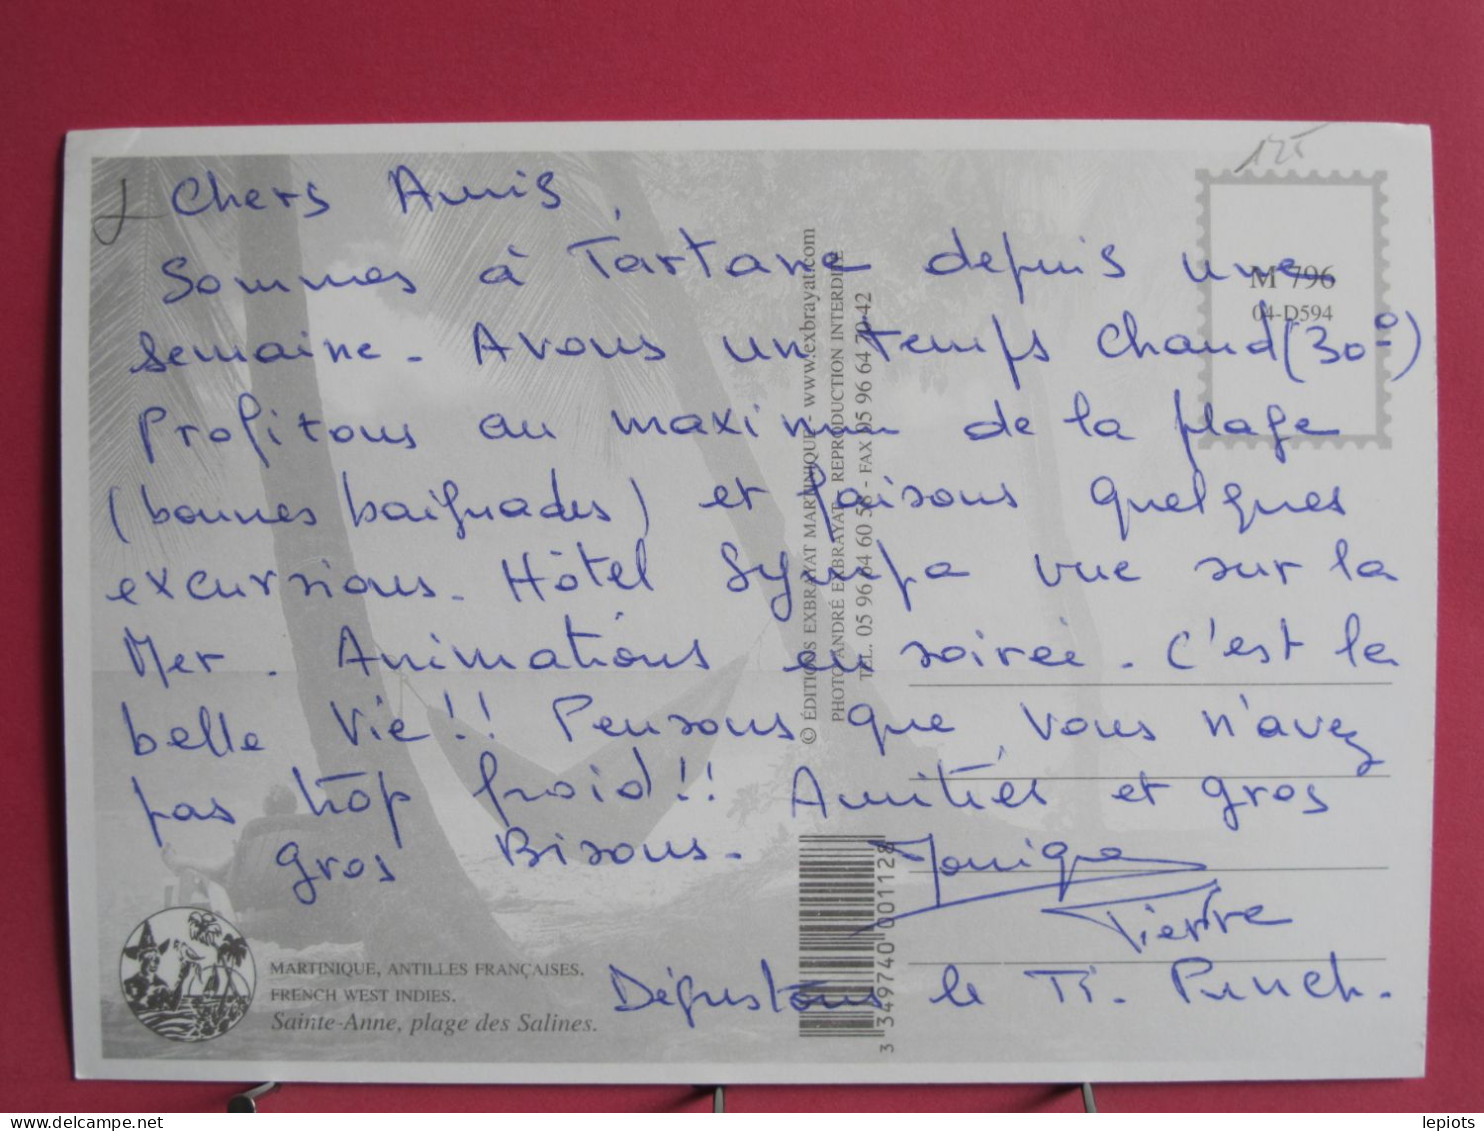 125
Chers Amis,
Sommes à Tartane depuis une
semaine - Avons un temps chaud (30º)
Profitons au maximum de la plage
(bonnes baignades) et faisons quelques
excursions - Hôtel Sympa vue sur la
Mer. Animations en soirée. C'est la
belle vie!! Pensons que vous n'avez
pas trop froid!! Amitiés et gros
gros Bisous -
Monique
Pierre
Dégustons le Ti - Punch.
M 796
04-D594
© ÉDITIONS EXBRAYAT MARTINIQUE - www.exbrayat.com
PHOTO ANDRÉ EXBRAYAT - REPRODUCTION INTERDITE
TEL. 05 96 64 60 58 - FAX 05 96 64 70 42
3 349740 001128
MARTINIQUE, ANTILLES FRANÇAISES.
FRENCH WEST INDIES.
Sainte-Anne, plage des Salines.
delcampe.net
lepiots